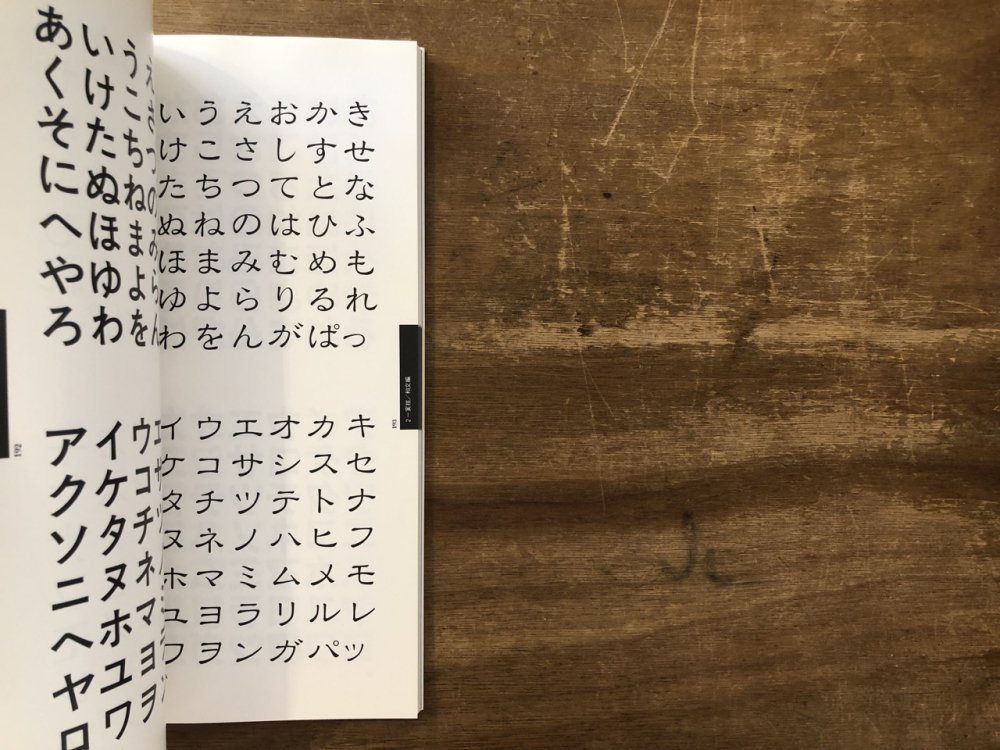 あいうえ
くけこさ
そたちつ
にぬねの
へほまみ
やゆよら
ろわをん
アイウエ
クケコサ
ソタチツ
ニヌネ
ヘホマ
ヤユヨ
ロワヲ
192
いうえおかき
けこさしすせ
たちつてとな
ぬねのはひふ
ほまみむめも
ゆよらりるれ
わをんがぱっ
イウエオカキ
ケコサシスセ
タチツテトナ
ヌネノハヒフ
ホマミムメモ
ユヨラリルレ
ワヲンガパッ
193